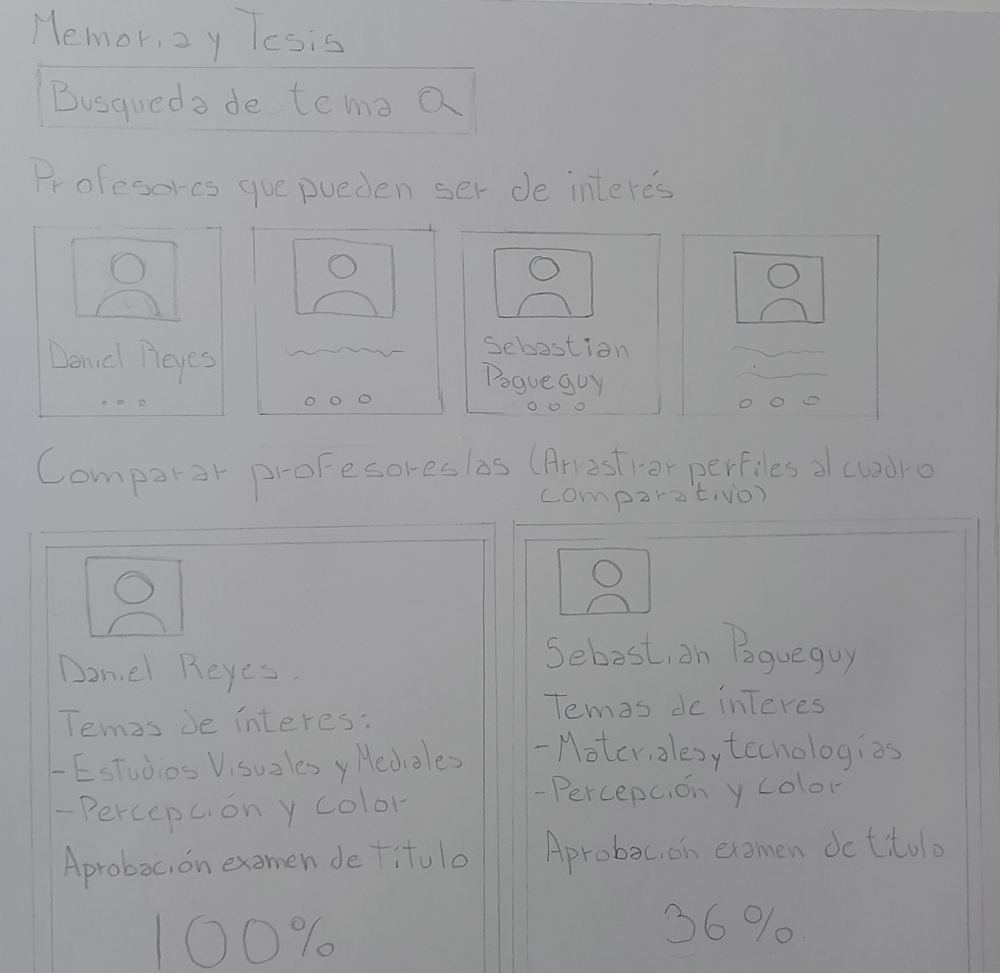 Memoria y Tesis
Busqueda de tema
Profesores que pueden ser de interés
Daniel Reyes
Sebastian
Pagueguy
Comparar profesores/as (Arrastrar perfiles al cuadro
comparativo)
Daniel Reyes.
Temas de ínteres:
- Estudios Visuales y Mediales
- Percepción y color
Aprobación examen de Título
100%
Sebastian Pagueguy
Temas de ínteres
- Materiales y tecnologías
- Percepción y color
Aprobación examen de título
36%.